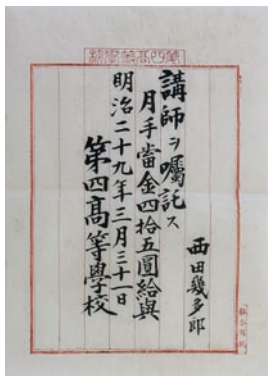 西田幾多郎
講師ヲ囑託ス
月手當金四拾五圓給與
明治二十九年三月三十一日
第四高等學校